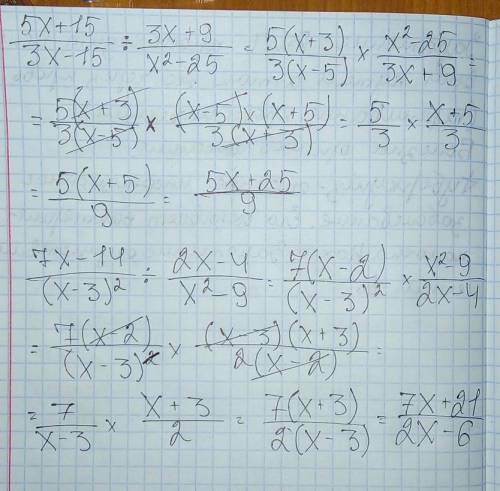 (5x+15)/(3x-15) ÷ (3x+9)/(x²-25) = (5(x+3))/(3(x-5)) × (x²-25)/(3x+9) =
= (5(x+3))/(3(x-5)) × ((x-5)×(x+5))/(3(x+3)) = 5/3 × (x+5)/3
= (5(x+5))/9 = (5x+25)/9
(7x-14)/((x-3)²) ÷ (2x-4)/(x²-9) = (7(x-2))/((x-3)²) × (x²-9)/(2x-4)
= (7(x-2))/((x-3)²) × ((x-3)(x+3))/(2(x-2)) =
= 7/(x-3) × (x+3)/2 = (7(x+3))/(2(x-3)) = (7x+21)/(2x-6)